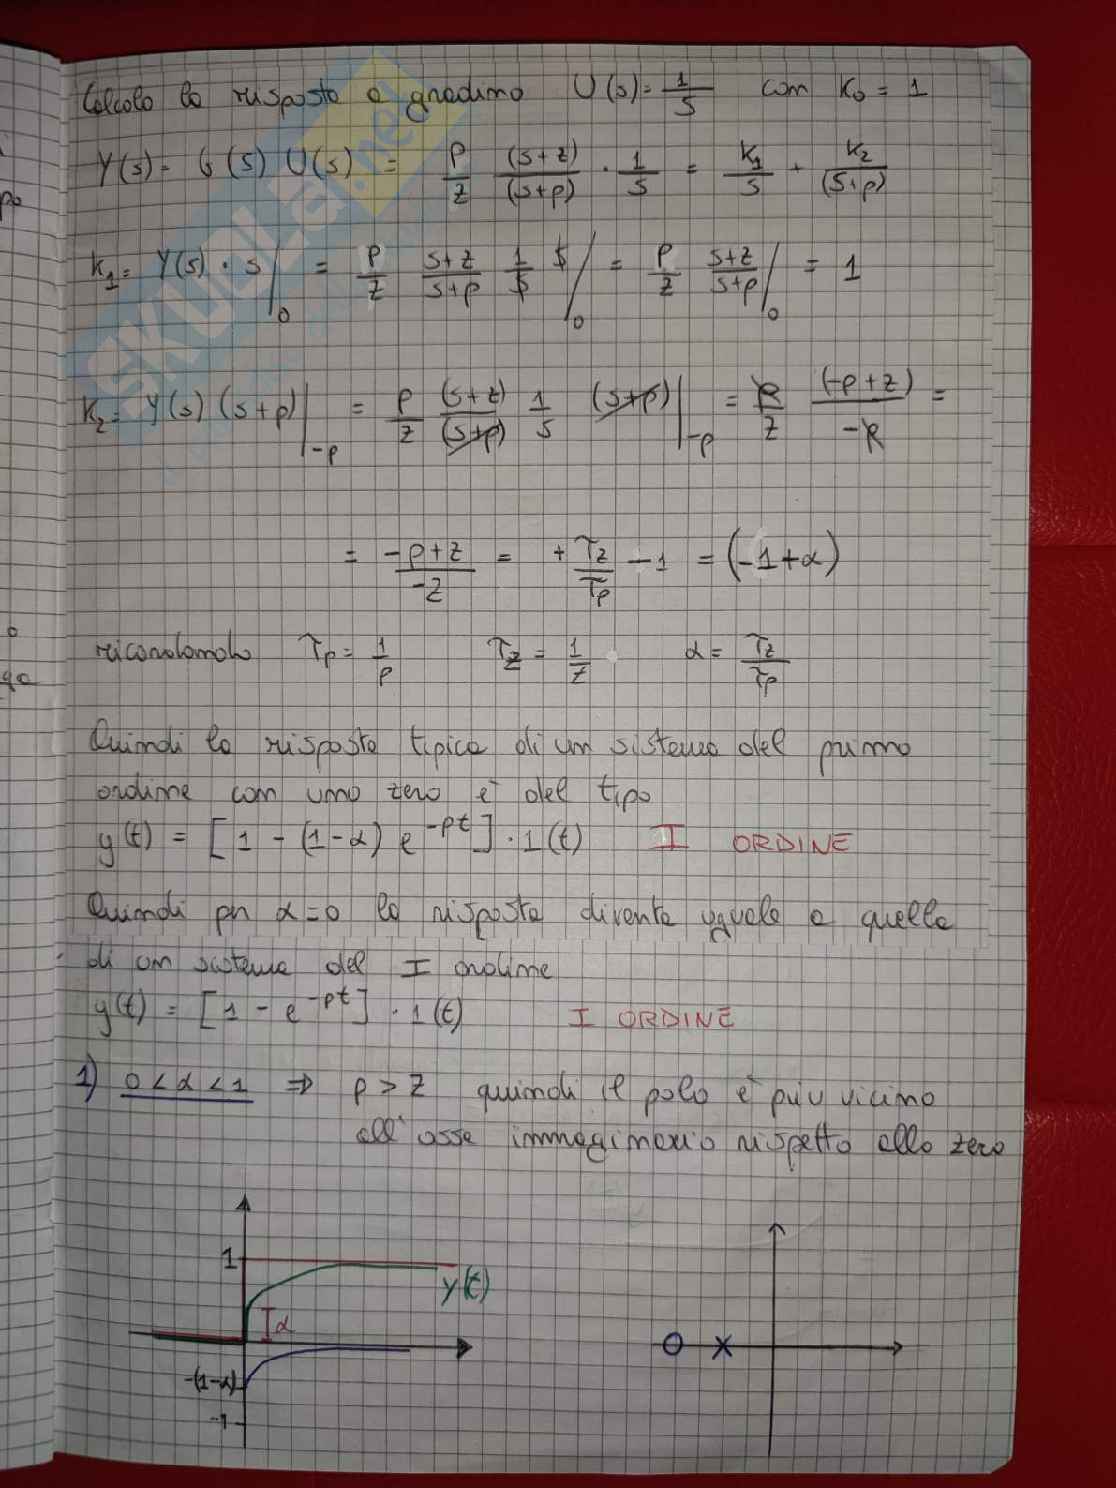 Calcolo la risposta a gradino U(s) = 1/s con K₀ = 1
Y(s) = G(s) U(s) = p/z (s+z)/(s+p) · 1/s = K₁/s + K₂/(s+p)
K₁ = Y(s) · s |₀ = p/z s+z/s+p 1/s s |₀ = p/z s+z/s+p |₀ = 1
K₂ = Y(s) (s+p) |₋p = p/z (s+z)/(s+p) 1/s (s+p) |₋p = p/z (-p+z)/-p =
= -p+z/-z = + τz/τp - 1 = (-1+α)
ricordando τp = 1/p τz = 1/z α = τz/τp
Quindi la risposta tipica di un sistema del primo
ordine con uno zero è del tipo
y(t) = [1 - (1-α) e^-pt] · 1(t) I ORDINE
Quindi per α=0 la risposta diventa uguale a quella
di un sistema del I ordine
y(t) = [1 - e^-pt] · 1(t) I ORDINE
1) 0 < α < 1 ⇒ p > z quindi il polo è più vicino
all'asse immaginario rispetto allo zero
1
y(t)
α
-(1-α)
-1
SKUOLa.net
po
o